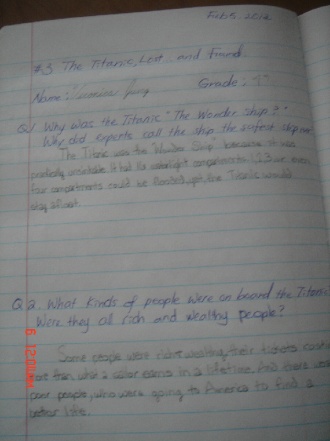 Feb 5, 2012
#3 The Titanic, Lost... and Found
Name: Grade:
Q1 Why was the Titanic "The Wonder Ship?"
Why did experts call the ship the safest ship
The Titanic was the "Wonder Ship" because it was
practically unsinkable. It had 16 watertight compartments 1,2,3 or even
four compartments could be flooded, yet, the Titanic would
stay afloat.
Q2. What kinds of people were on board the Titanic
Were they all rich and wealthy people?
Some people were rich & wealthy, their tickets cost
more than what a sailor earns in a lifetime. And there were
poor people, who were going to America to find a
better life.